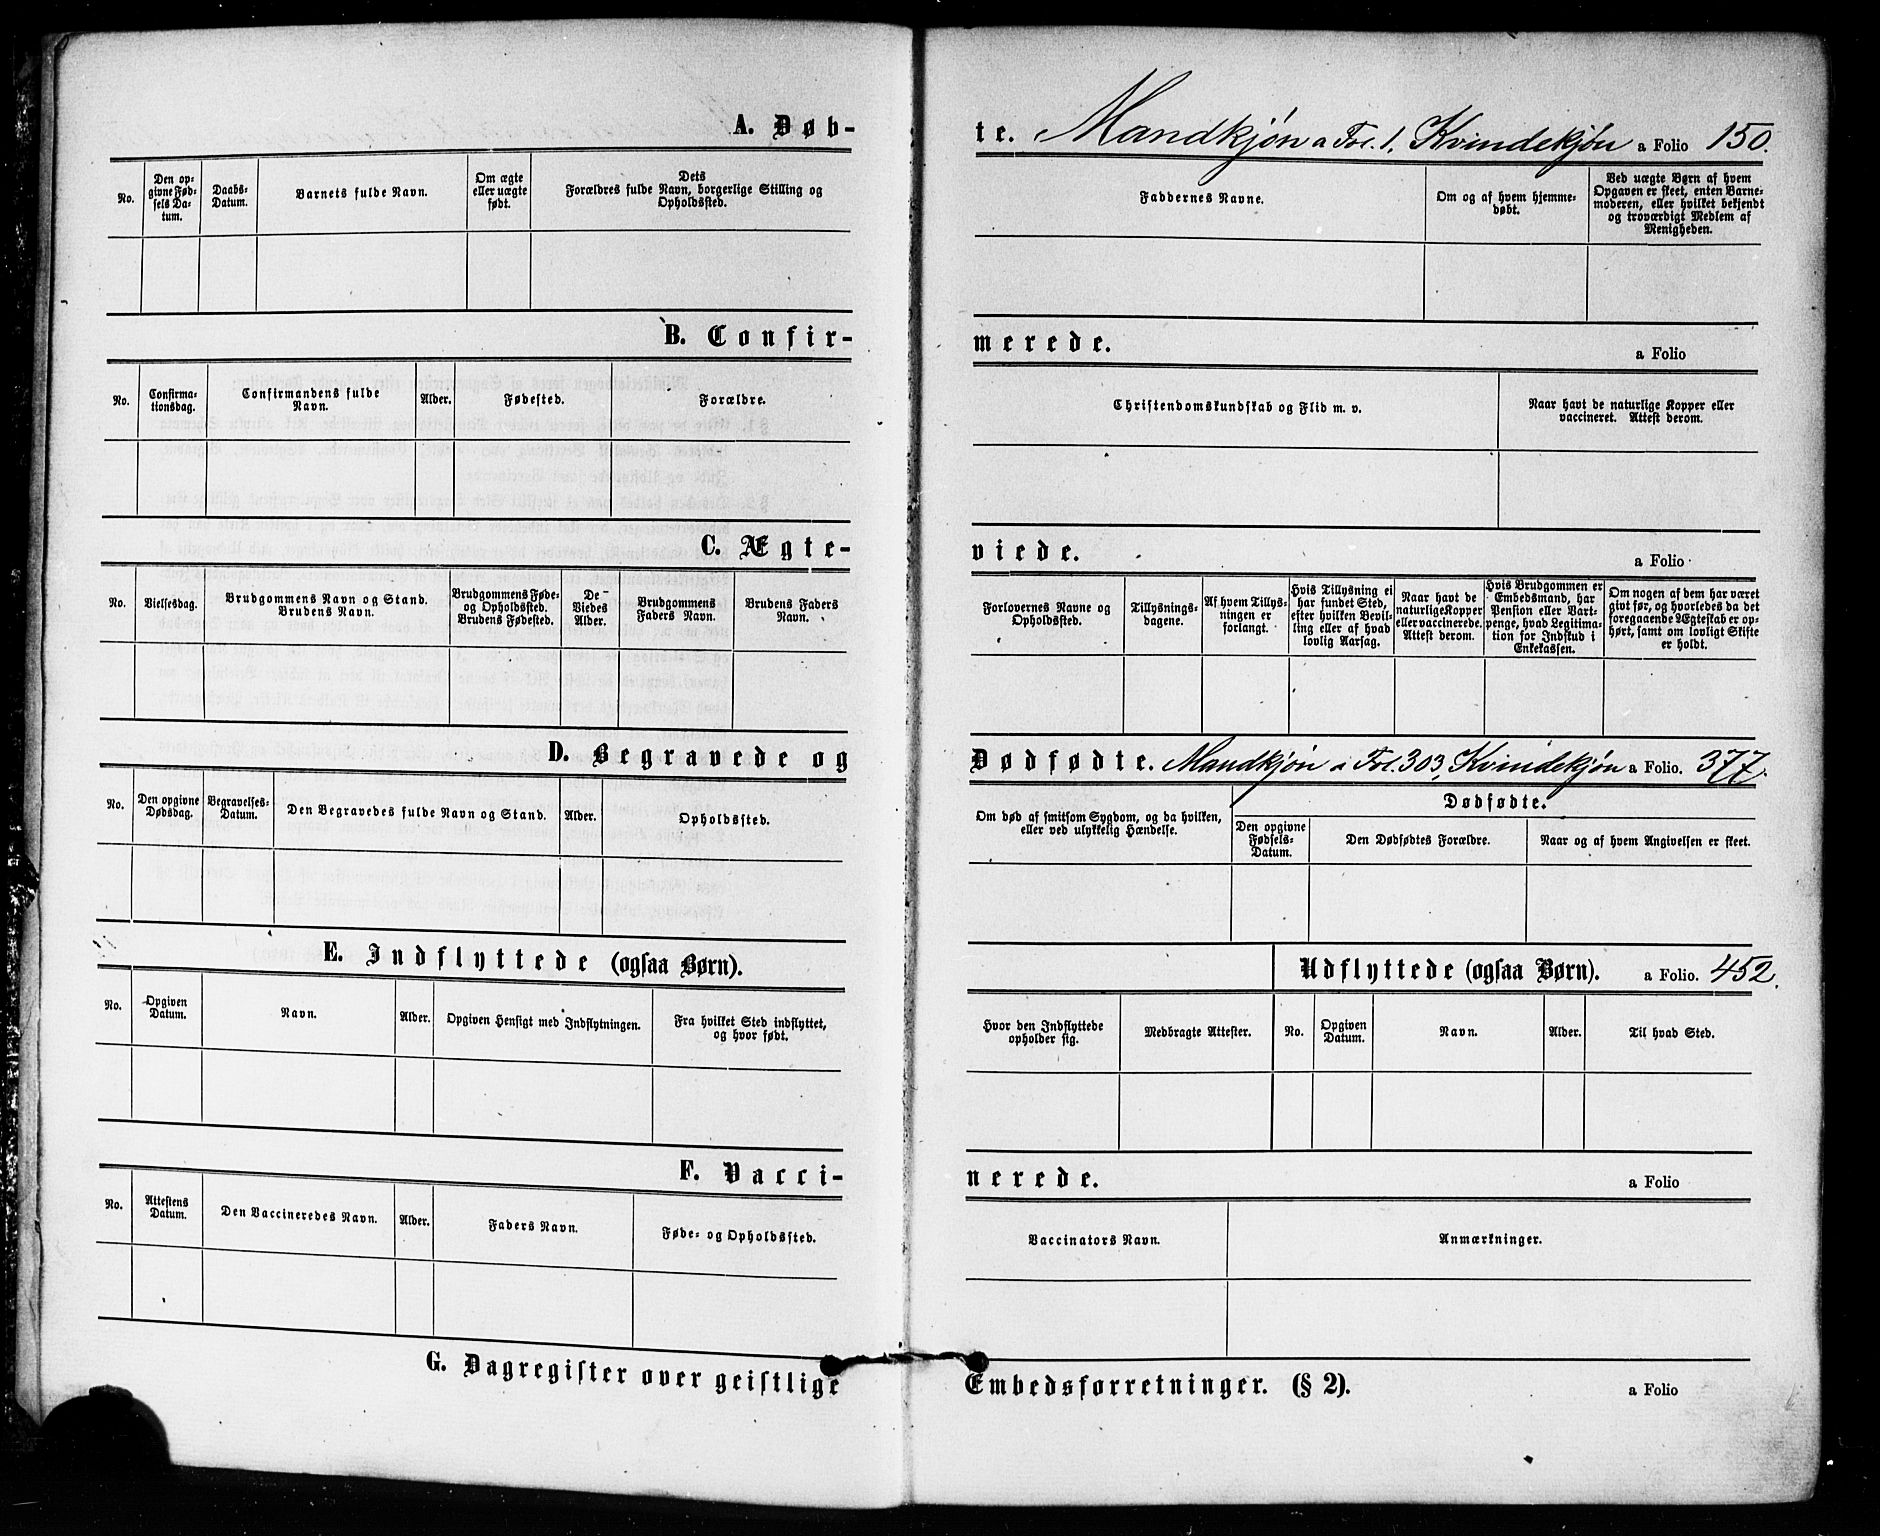 A. Døb-
No.
Den op-
givne Fød-
sels Da-
tum.
Daabs-
Datum.
Barnets fulde Navn.
Om ægte
eller uægte
født.
Dets
Forældres fulde Navn, borgerlige Stilling og
Opholdssted.
B. Confir-
No.
Confirma-
tionsdag.
Confirmandens fulde
Navn.
Alder.
Fødested.
Forældre.
C. Ægte-
No.
Vielsesdag.
Brudgommens Navn og Stand.
Brudens Navn.
Brudgommens Føde-
og Opholdssted.
Brudens Fødested.
De
Viedes
Alder.
Brudgommens
Faders Navn.
Brudens Faders
Navn.
D. Begravede og
No.
Den opgivne
Dødsdag.
Begravelses-
Datum.
Den Begravedes fulde Navn og Stand.
Alder.
Opholdssted.
E. Indflyttede (ogsaa Børn).
No.
Opgiven
Datum.
Navn.
Alder.
Opgiven Hensigt med Indflytningen.
Fra hvilket Sted indflyttet,
og hvor født.
F. Vacci-
No.
Attestens
Datum.
Den Vaccineredes Navn.
Alder.
Faders Navn.
Føde- og Opholdssted.
G. Dagregister over geistlige
te. Mandkjøn a Fol. 1. Kvindekjøn a Folio 150.
Faddernes Navne.
Om og af hvem hjemme-
døbt.
Ved uægte Børn af hvem
Opgaven er skeet, enten Barne-
moderen, eller hvilket bekjendt
og troværdigt Medlem af
Menigheden.
merede. a Folio
Christendomskundskab og Flid m. v.
Naar havt de naturlige Kopper eller
vaccineret. Attest derom.
viede. a Folio
Forlovernes Navne og
Opholdssted.
Tillysnings-
dagene.
Af hvem Tillys-
ningen er
forlangt.
Hvis Tillysning ei
har fundet Sted,
efter hvilken Bevil-
ling eller af hvad
lovlig Aarsag.
Naar havt de
naturlige Kopper
eller vaccinerede.
Attest derom.
Hvis Brudgommen er
Embedsmand, har
Pension eller Vart-
penge, hvad Legitima-
tion for Indskud i
Enkekassen.
Om nogen af dem har været
givt før, og hvorledes da det
foregaaende Ægteskab er op-
hørt, samt om lovligt Skifte
er holdt.
Dødfødte. Mandkjøn a Fol. 303, Kvindekjøn a Folio. 377.
Om død af smitsom Sygdom, og da hvilken,
eller ved ulykkelig Hændelse.
Dødfødte.
Den opgivne
Fødsels-
Datum.
Den Dødfødtes Forældre.
Naar og af hvem Angivelsen er skeet.
Udflyttede (ogsaa Børn). a Folio. 452.
Hvor den Indflyttede
opholder sig.
Medbragte Attester.
No.
Opgiven
Datum.
Navn.
Alder.
Til hvad Sted.
nerede. a Folio
Vaccinators Navn.
Anmærkninger.
Embedsforretninger. (§ 2). a Folio